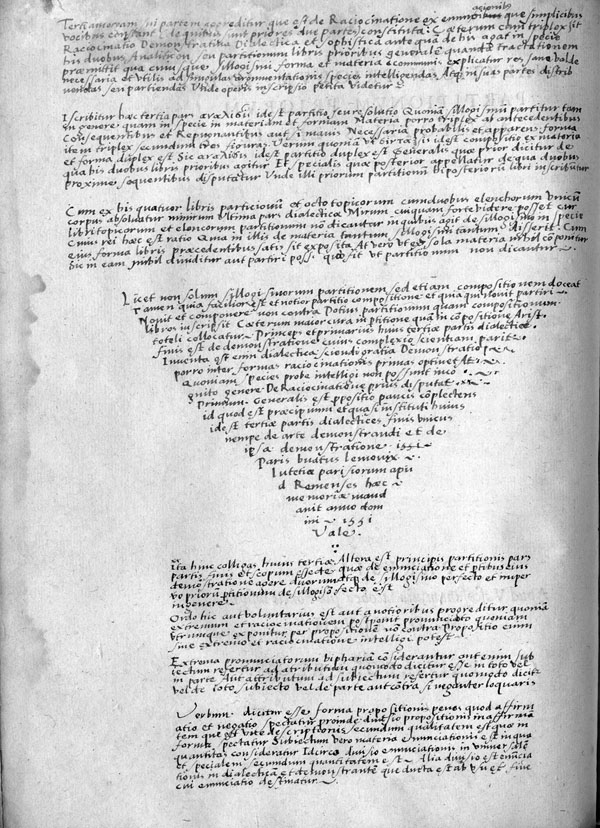 Tertiam oram in partem progreditur quæ est de Raciocinatione ex enunciationibus quæ simplicibus
vocibus constant (de quibus sunt priores duæ partes) constituta. Cæterum cum triplex sit
Raciocinatio Demonstratiua Dialectica et Sophistica antequa de his agat in specie
his duobus Analiticωn seu partitionum libris prioribus generalē quandā tractationem
præmittit qua cuiusque sillogismi forma et materia cōmunis explicatur res sane valde
necessaria et vtilis ad singulas argumentationis species intelligendas Atque in suas partes distrib
uendas seu partiendas Unde operis inscriptio petita videtur
Iscribitur hæc tertia pars id est partitio seu resolutio Quoniā sillogismus partitur tam
in genere quam in specie in materiam et formam Materia porro triplex ab antecedentibus
Consequentibus et Repugnantibus aut si mauis Necessaria probabilis et apparens, forma
item triplex secundum tres figuras. Verum quoniā id est compositio ex materia
et forma duplex est Sic id est partitio duplex est Generalis quæ prior dicitur de
qua his duobus libris prioribus agitur Et specialis quæ posterior appellatur de qua duobus
proximis sequentibus disputatur Unde illi priorum partitionū hi posteriorū libri inscribuntur
Cum ex his quatuor libris particionū et octo topicorum cum duobus elenchorum vnicū
corpus absoluatur nimirum Vltima pars dialecticæ Mirum cuiquam forte videri posset cur
libri topicorum et elencorum partitionum nō dicantur in quibus agit de sillogismo in specie
Cuius rei hæc est ratio Quia in illis de materia tantum sillogismi tantum Disserit. Cum
eius forma libris præcedentibus satis sit exposita At vero vt ex sola materia nihil cōponitur
Sic in eam nihil diuiditur aut partiri possit vt partitionum non dicantur
Licet non solum sillogismorum partitionem sed etiam compositionem doceat
Tamen quia facilior est et notior partitio compositione et qua qui nouit partiri
Nouit et componere non contra Potius partitionum quam compositionum
libros inscripsit Cæterum maior cura in ptitione quā in cōpositione Aris
toteli collocatur Princeps et primarius huius tertiæ partis dialecticæ
finis est de demonstratione cuius complexio scientiam parit
Inuenta est enim dialectica sciendi gratia Demonstratio
porro inter formas raciocinationis primas optinet At
Quoniam species probe intelligi non possunt inco
gnito genere De Raciocinatione prius disputat
Primum Generalis est ppositio paucis cōplectens
id quod est præcipuum et quasi instituti huius
id est tertiæ partis dialectices finis vnicus
nempe de arte demonstrandi et de
ipsa demonstratione 1551
Paris buatus Lemouix
Lutetiæ parisiorum apu
d Remenses hæc
memoriæ mand
auit anno dom
ini 1551
Vale
ita hinc colligas huius tertiæ Altera est principii partitionis pars
partis finis et scopum esse de quæ de enunciatione et ptibus eius
demonstratione agere duorumque de sillogismo perfecto et imper
vo priorū ptitionum de sillogismo fecto est
in genere
Ordo hic aut voluntarius est aut a notioribus progreditur quoniā
extremum et raciocinationem postponit pronunciato quoniam
vtrumque exponitur per propositionē non contra Propositio enim
sine extremo et raciocinatione intelligi potest
Extrema pronunciatorum bipharia cōsiderantur aut enim sub
iectum refertur ad attributum quomodo dicitur esse in toto vel
in parte Aut attributum ad subiectum refertur quomodo dicitr
vel de toto subiecto vel de parte aut cōtra si negauter loquaris
Verbum dicitur esse forma propositionis penes quod affirm
atio et negatio spectatur proinde diuisio propositionis in affirmā
tem que est vnde descriptionis secundum qualitatem est quia in
forma spectatur Subiectum vero materia enunciationis est in quo
quantitas consideratur Idcirco diuisio enunciationis in vniuersalē
et specialem secundum quantitatem est Alia diuisio est enūcia
tionis in dialecticā et demonstrantē quæ ducta est ab vsu et fine
cui enunciatio destinatur